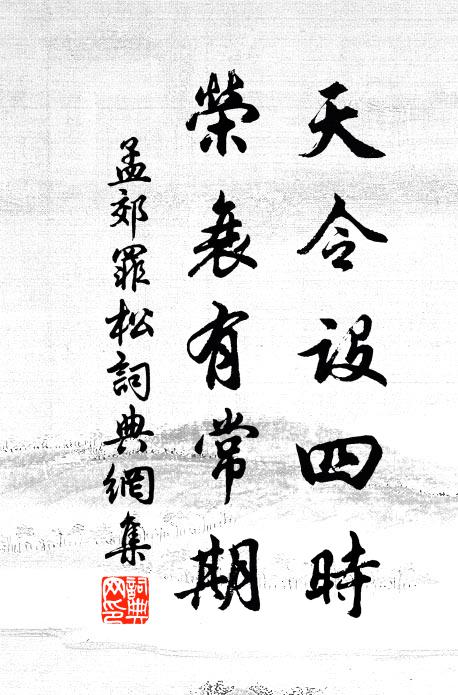 天令設四時
榮衰有常期
孟郊罪松詞典網集
詞典网印